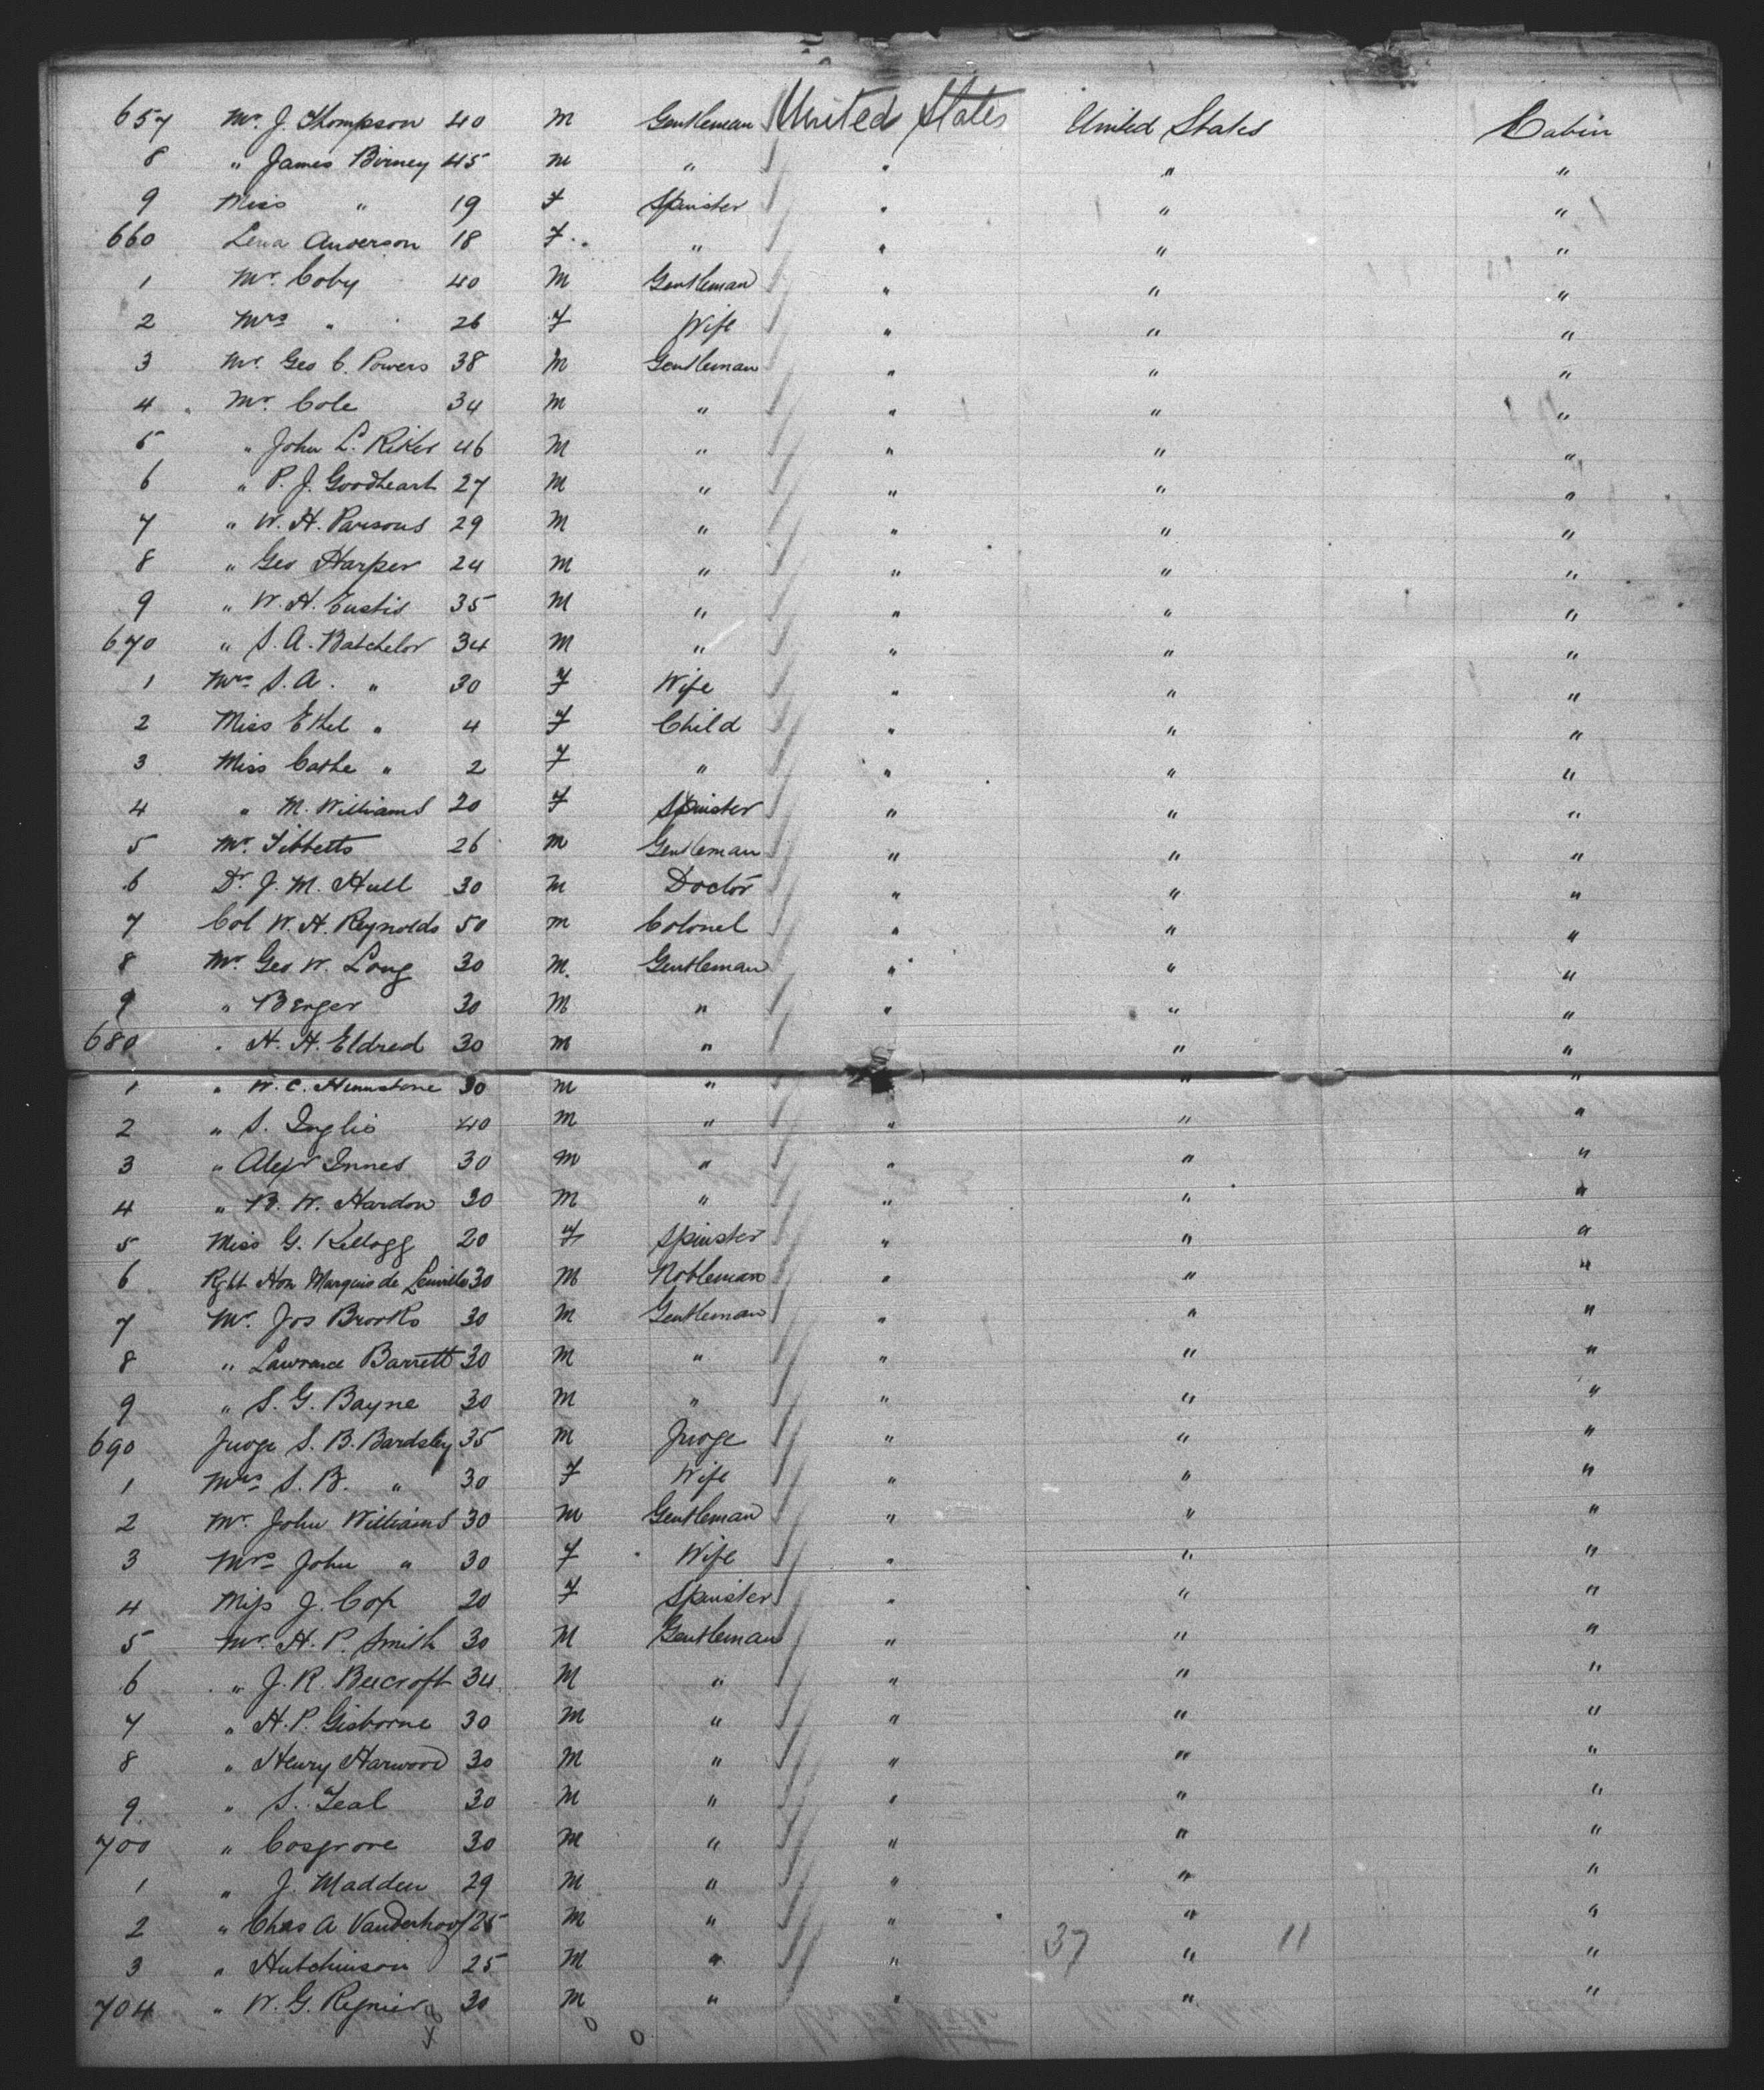 657 Mr. J. Thompson 40 M Gentleman United States United States Cabin
8 " James Birney 45 M " " " "
9 Miss " 19 F Spinster " " "
660 Lena Anderson 18 F " " " "
1 Mr. Coby 40 M Gentleman " " "
2 Mrs " 26 F Wife " " "
3 Mr. Geo C. Powers 38 M Gentleman " " "
4 Mr. Cole 34 M " " " "
5 " John L. Riker 46 M " " " "
6 " P. J. Goodheart 27 M " " " "
7 " W. H. Parsons 29 M " " " "
8 " Geo Harper 24 M " " " "
9 " W. H. Eustis 35 M " " " "
670 " S. A. Batchelor 34 M " " " "
1 Mrs S. A. " 30 F Wife " " "
2 Miss Ethel " 4 F Child " " "
3 Miss Cathe " 2 F " " " "
4 " M. Williams 20 F Spinster " " "
5 Mr. Tibbetts 26 M Gentleman " " "
6 Dr. J. M. Hull 30 M Doctor " " "
7 Col W. H. Reynolds 50 M Colonel " " "
8 Mr. Geo. W. Long 30 M. Gentleman " " "
9 " Berger 30 M " " " "
680 " H. H. Eldred 30 M " " " "
1 " W. C. 30 M " " "
2 " S. Inglis 40 M " " " "
3 " Alexr Innes 30 M " " " "
4 " B. W. Hardon 30 M " " " "
5 Miss G. Kellogg 20 F Spinster " " "
6 Rght Hon Marquis de Leuville 30 M Nobleman " " "
7 Mr. Jos Brooks 30 M Gentleman " " "
8 " Lawrance Barrett 30 M " " " "
9 " S. G. Bayne 30 M " " " "
690 Judge S. B. Bardsley 35 M Judge " " "
1 Mrs S. B. " 30 F Wife " " "
2 Mr. John Williams 30 M Gentleman " " "
3 Mrs John " 30 F Wife " " "
4 Miss J. Cox 20 F Spinster " " "
5 Mr. H. P. Smith 30 M Gentleman " " "
6 " J. R. Beecroft 34 M " " " "
7 " H. P. Gisborne 30 M " " " "
8 " Henry Harwood 30 M " " " "
9 " S. Teal 30 M " " " "
700 " Cosgrove 30 M " " " "
1 " J. Madden 29 M " " " "
2 " Chas A Vanderhoof 25 M " " " "
3 " Hutchinson 25 M " " 37 " 11 "
704 " W. G. Regnier 30 M " " " "